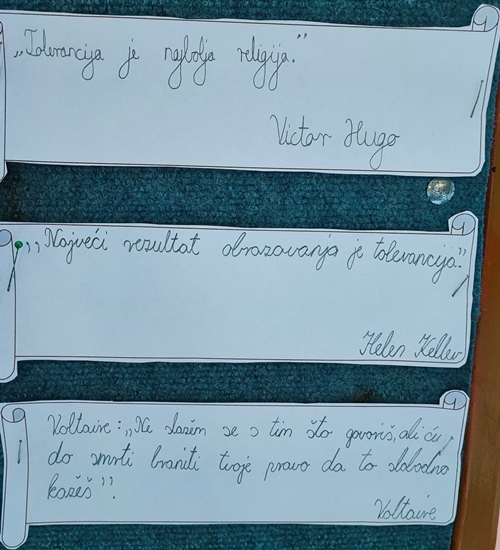 „Tolerancija je najbolja religija.”
Victor Hugo
„Najveći rezultat obrazovanja je tolerancija.”
Helen Keller
Voltaire: „Ne slažem se s tim što govoriš, ali ću
do smrti braniti tvoje pravo da to slobodno
kažeš”.
Voltaire